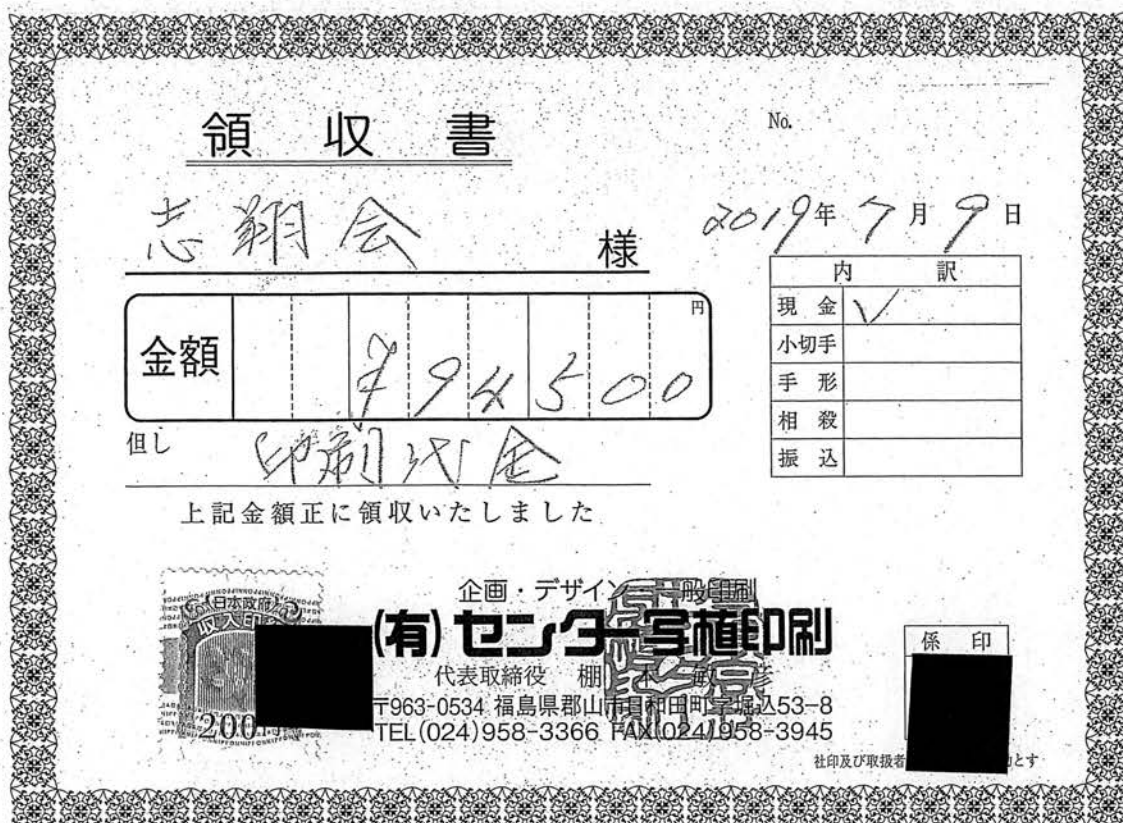 領収書
No.
志翔会 様
2019年 7月 9日
内訳
金額 ¥94500 円
現金 ✓
小切手
手形
相殺
振込
但し 印刷代金
上記金額正に領収いたしました
日本政府
収入印
200
企画・デザイン 一般印刷
(有)センター写植印刷
代表取締役 棚 敏
〒963-0534 福島県郡山市日和田町字堀込53-8
TEL(024)958-3366 FAX(024)958-3945
係印
社印及び取扱者 とす